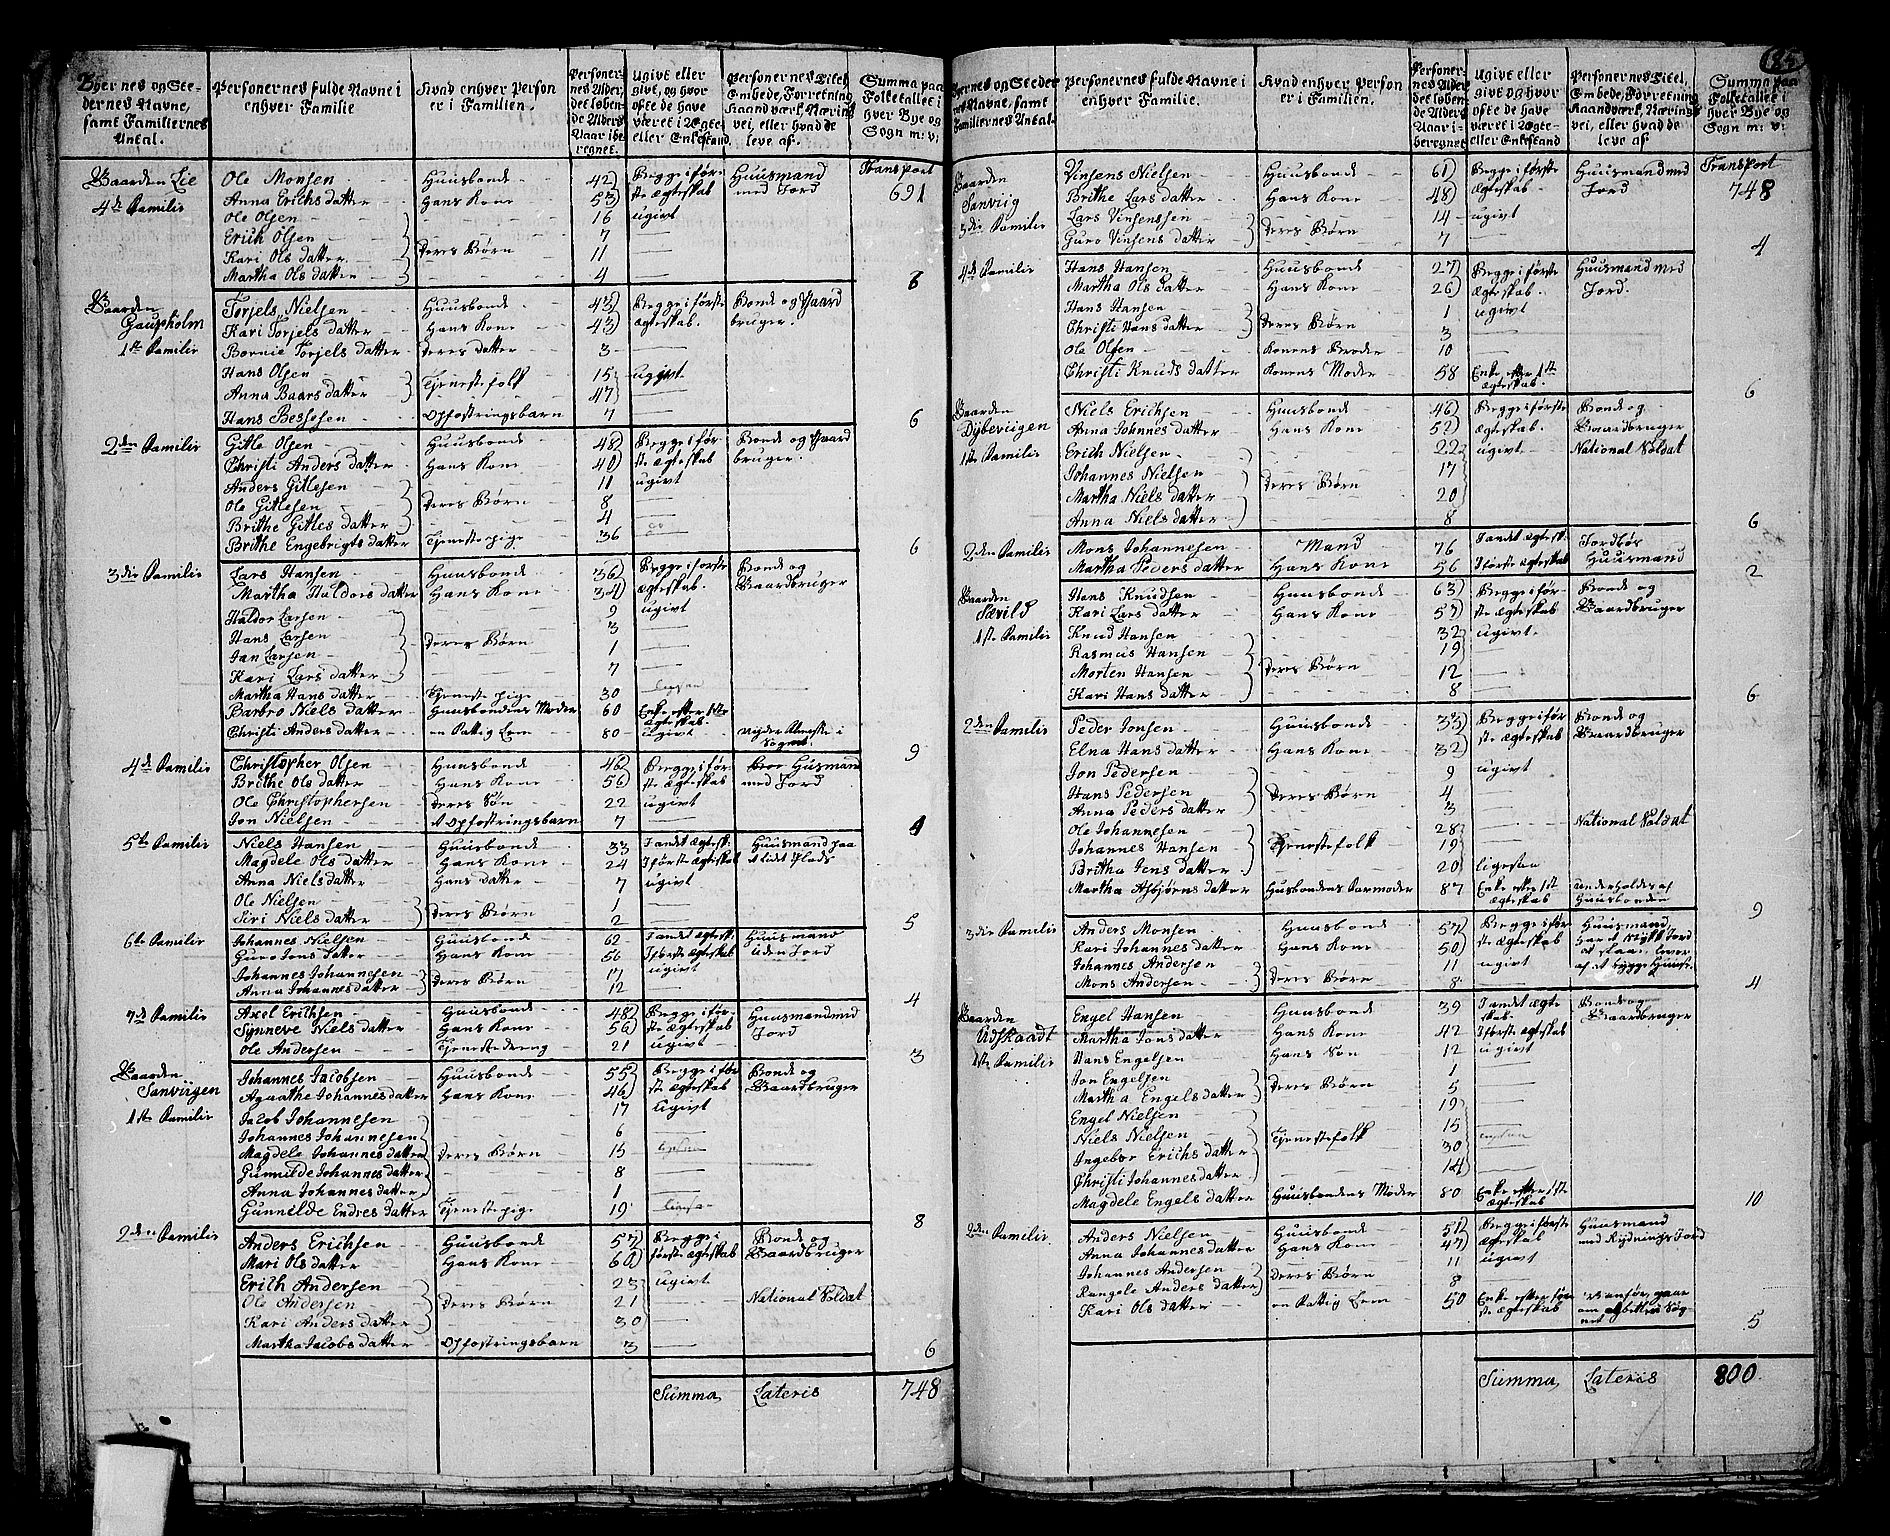 Byernes og Ste-
dernes Navne,
samt Familiernes
Antal.
Personernes fulde Navne i
enhver Familie
Hvad enhver Person
er i Familien.
Personer-
nes Alder,
det løben-
de Alders
Aar ibe-
regnet.
Ugivt eller
givt, og hvor
ofte de have
været i Ægte-
eller Enkestand
Personernes Titel
Embede, Forretning
Haandværk, Næring
vei, eller hvad de
leve af.
Summa paa
Folketallet i
hver Bye og
Sogn m: v:
Gaarden Lie Ole Monsen Huusbonde 42) Begge i før- Huusmand Transport
Anna Erichs datter Hans Kone 53) ste ægteskab med Jord 691
4de Familie Ole Olsen 16 ugivt
Erich Olsen 7
Kari Ols datter Deres Børn 11
Martha Ols datter 4 6
Gaarden Torjels Nielsen Huusbonde 43) Begge i første Bonde og Gaard
Gaupholm Kari Torjels datter Hans Kone 43) ægteskab. bruger.
1ste Familie Bornie Torjels datter Deres datter 3
Hans Olsen 15 ugivt
Anna Baars datter Tjenestefolk 47
Hans Bessesen Opfostringsbarn 7 6
2den Familie Gitle Olsen Huusbonde 48) Begge i før- Bonde og Gaard
Christi Anders datter Hans Kone 40) ste ægteskab bruger.
Anders Gitlesen 11 ugivt
Ole Gitlesen Deres Børn 8
Brithe Gitles datter 4
Brithe Engebrigts datter Tjenestepige 36 6
3die Familie Lars Hansen Huusbonde 36) Begge i første Bonde og
Martha Haldors datter Hans Kone 34) ægteskab. Gaardbruger
Haldor Larsen 9 ugivt
Hans Larsen 3
Jan Larsen Deres Børn 1
Kari Lars datter 7
Martha Hans datter Tjenestepige 30
Barbro Niels datter Huusbondens Moder 60 Enke efter 1ste
ægteskab.
Christi Anders datter en Fattig Lem 80 ugivt nyder Almisse i
Sognet 9
4de Familie Christopher Olsen Huusbonde 46) Begge i før- Husmand
Brithe Ols datter Hans Kone 56) ste ægteskab med Jord
Ole Christophersen Deres Søn 22 ugivt
Jon Nielsen Opfostringsbarn 7 4
5te Familie Niels Hansen Huusbonde 33 I andet ægtesk: Huusmand paa
Magdele Ols datter Hans Kone 24 I første ægteskab lidet Plads
Anna Niels datter Hans datter 7 ugivt
Ole Nielsen 1
Siri Niels datter Deres Børn 2 5
6te Familie Johannes Nielsen Huusbonde 62 I andet ægtesk: Huusmand
Guro Jons datter Hans Kone 56 I første ægteskab uden Jord
Johannes Johannesen 17 ugivt
Anna Johannes datter Deres Børn 12 4
7de Familie Axel Erichsen Huusbonde 48) Begge i før- Huusmand med
Synneve Niels datter Hans Kone 56) ste ægteskab Jord
Ole Andersen Tjenestedreng 21 ugivt 3
Gaarden Johannes Jacobsen Huusbonde 55) Begge i før Bonde og
Sanviigen Agaathe Johannes datter Hans Kone 46) ste ægteskab Gaardbruger
1ste Familie Jacob Johannesen 17 ugivt
Johannes Johannesen 6
Magdele Johannes datter Deres Børn 15
Gunnilde Johannes datter 8
Anna Johannes datter 1
Gunnilde Endres datter Tjenestepige 19 8
2den Familie Anders Erichsen Huusbonde 57) Begge i Bonde og
Mari Ols datter Hans Kone 60) første ægteskab Gaardbruger
Erich Andersen 23 ugivt
Ole Andersen Deres Børn 21 National Soldat
Kari Anders datter 30
Martha Jacobs datter Opfostringsbarn 3 6
Summa Lateris 748
85
Byernes og Steder
nes Navne, samt
Familiernes Antal
Personernes fulde Navne i
enhver Familie.
Hvad enhver Person
er i Familien.
Personer-
nes Alder,
det løben-
de Alders
Aar i-
beregnet
Ugivt eller
givt og hvor
ofte de have
været i Ægte-
eller Enkestand
Personernes Titel,
Embede, Forretning
Haandværk, Nærings
vei, eller hvad de
leve af.
Summa paa
Folketallet i
hver Bye og
Sogn m: v:
Gaarden Vinsens Nielsen Huusbonde 61) Begge i første Huusmand med Transport
Sanviig Brithe Lars datter Hans Kone 48) ægteskab. Jord 748
3die Familie Lars Vinsenssen 14 ugivt
Guro Vinsens datter Deres Børn 7 4
4de Familie Hans Hansen Huusbonde 27) Begge i første Huusmand med
Martha Ols datter Hans Kone 26) ægteskab. Jord.
Hans Hansen 1 ugivt
Christi Hans datter Deres Børn 3
Ole Olsen Konens Broder 10
Christi Knuds datter Konens Moder 58 Enke efter 1ste
ægteskab. 6
Gaarden Niels Erichsen Huusbonde 46) Begge i første Bonde og
Dybeviigen Anna Johnnes datter Hans Kone 52) ægteskab. Gaardbruger
1ste Familie Erich Nielsen 22 ugivt National Soldat
Johannes Nielsen 17
Martha Niels datter Deres Børn 20
Anna Niels datter 8 6
2den Familie Mons Johannesen Mand 76 I andet ægtesk: Jordløs
Martha Peders datter Hans Kone 56 I første ægteskab Huusmand 2
Gaarden Hans Knudsen Huusbonde 63) Begge i før- Bonde og
Særild Kari Lars datter Hans Kone 57) ste ægteskab Gaardbruger
1ste Familie Knud Hansen 32 ugivt.
Rasmus Hansen 19
Morten Hansen Deres Børn 12
Kari Hans datter 8 6
2den Familie Peder Jonsen Huusbonde 33) Begge i før- Bonde og
Elna Hans datter Hans Kone 32) ste ægteskab Gaardbruger
Jon Pedersen 9 ugivt
Hans Pedersen Deres Børn 4
Anna Peders datter 3
Ole Johannesen 28 National Soldat
Johannes Hansen Tjenestefolk 19
Britha Jens datter 20 ligesaa
Martha Asbjørns datter Husbondens Farmoder 87 Enke efter 1ste Underholdes af
ægteskab Huusbonden 9
3die Familie Anders Monsen Huusbonde 57) Begge i før Huusmand
Kari Johannes datter Hans Kone 50) ste ægteskab har et stykke Jord
Johannes Andersen 11 ugivt at slaae, lever
Mons Andersen Deres Børn 8 af at bygge Huuse 4
Gaarden Engel Hansen Huusbonde 39 I andet ægte Bonde og
skab. Gaardbruger
Udskaadt Martha Jons datter Hans Kone 42 I første ægteskab
1ste Familie Hans Engelsen Hans Søn 12 ugivt
Jon Engelsen 1
Martha Engels datter Deres Børn 5
Engel Nielsen 19
Niels Nielsen Tjenestefolk 15
Ingebor Erichs datter 30
Christi Johannes datter 14
Magdele Engels datter Huusbondens Moder 80 Enke efter 1ste
ægteskab 10
2den Familie Anders Nielsen Huusbonde 51) Begge i første Huusmand
Anna Johannes datter Hans Kone 47) ægteskab med Rydnings Jord
Johannes Andersen 11 ugivt
Rangele Anders datter Deres Børn 8
Kari Ols datter en Fattig Lem 50 Enke efter før Vanfør, gaar
ste ægteskab om Sog
net 5
Summa Lateris 800